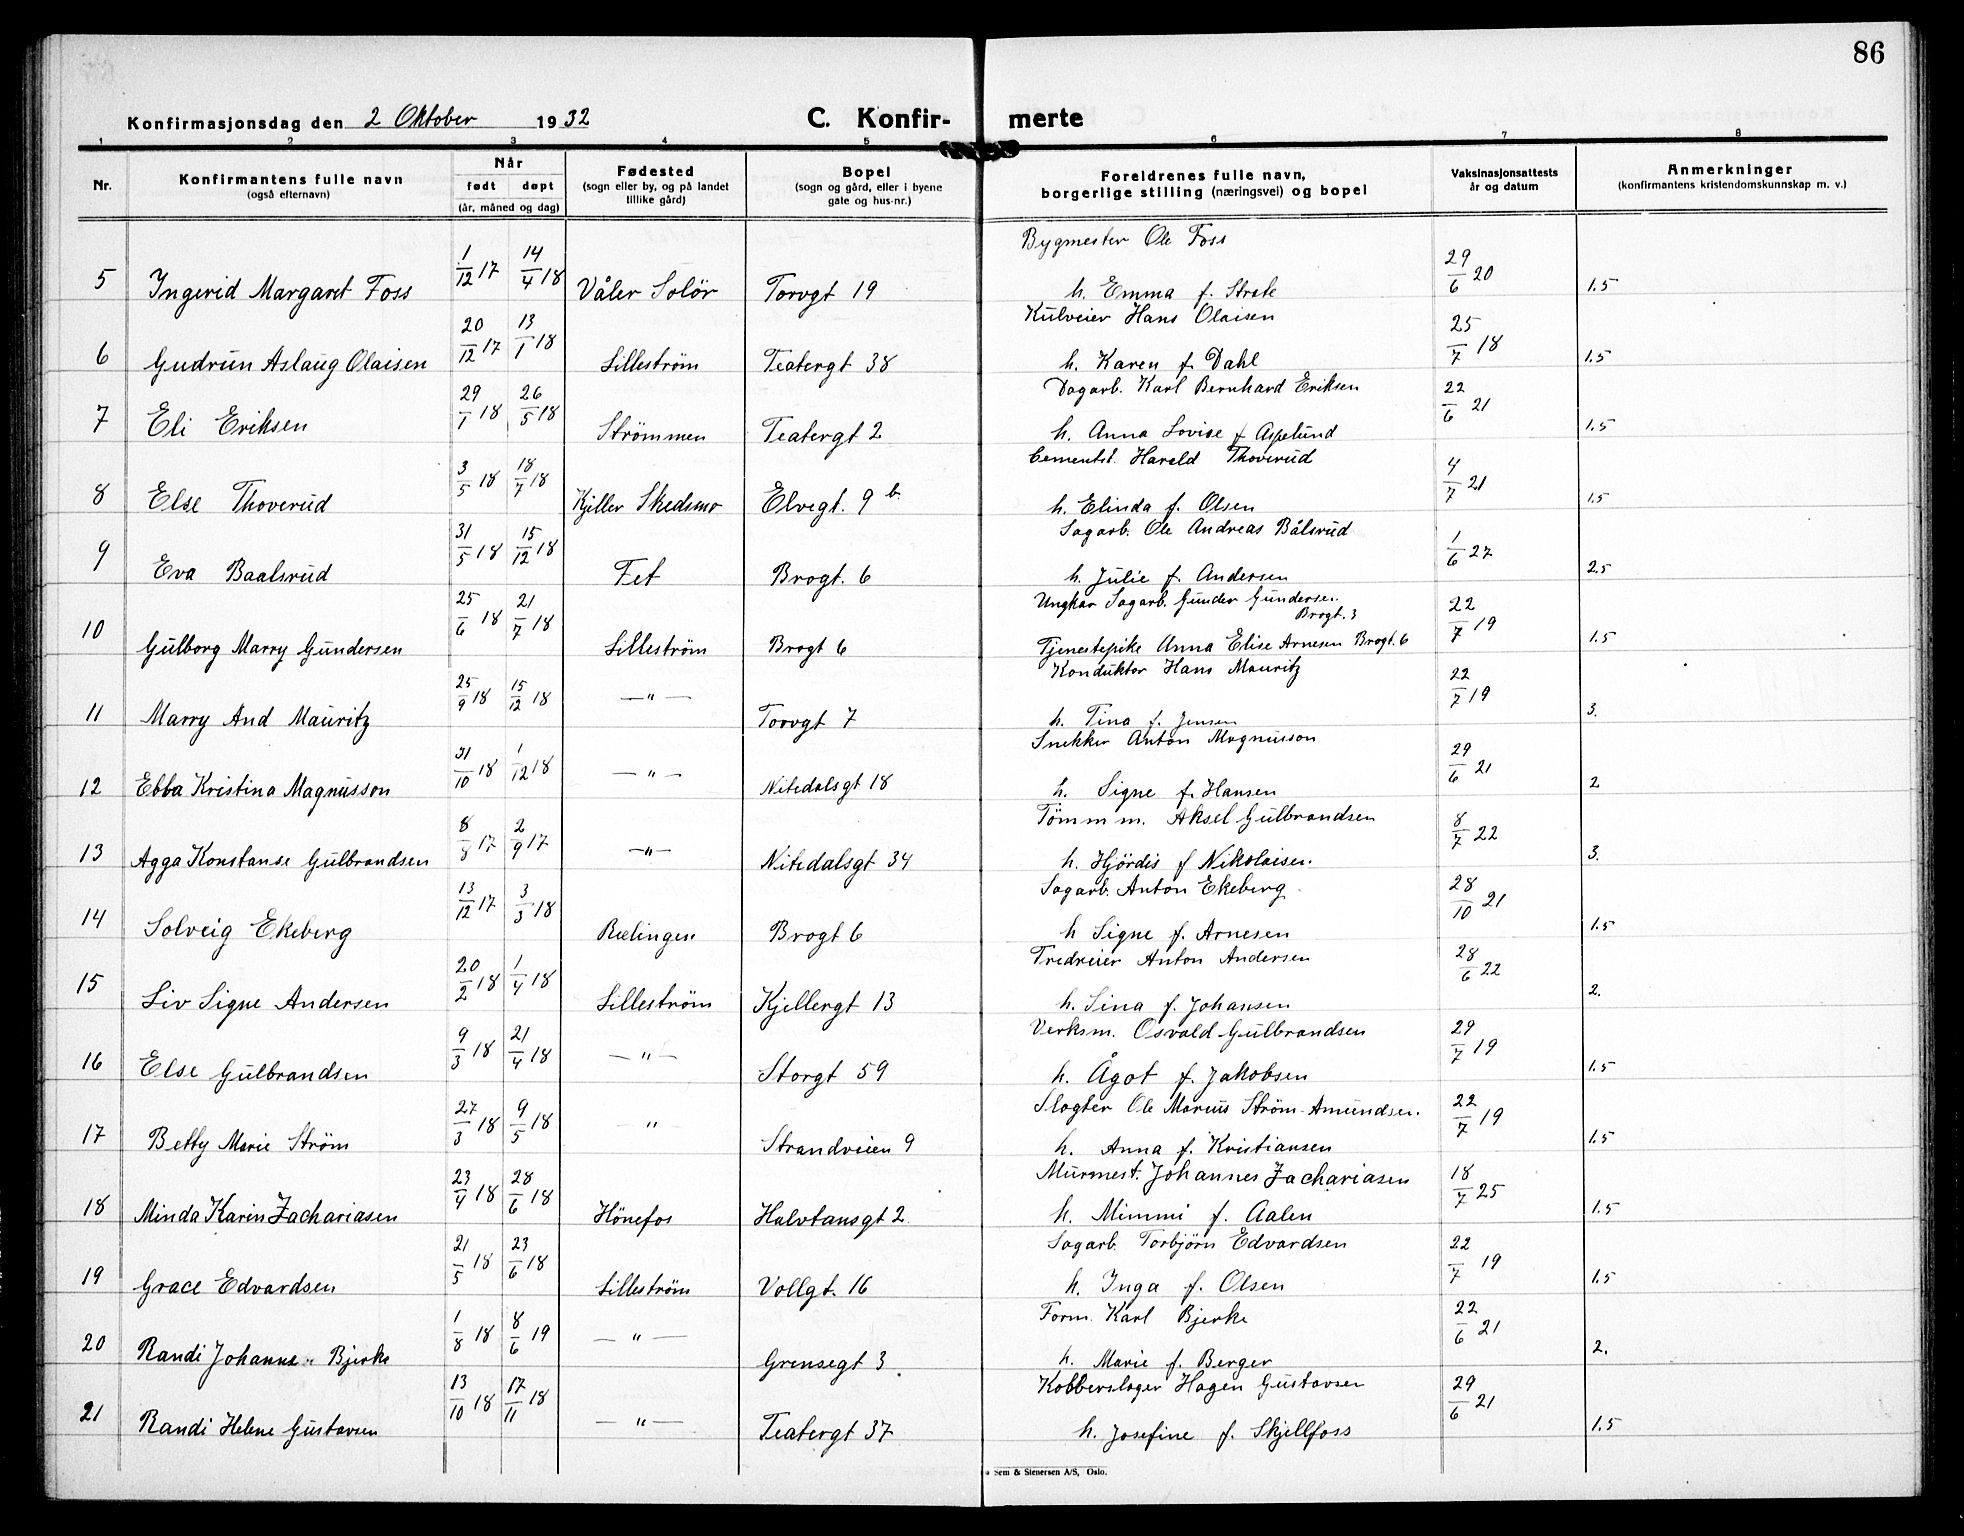 86
Konfirmasjonsdag den 2 Oktober 1932 C. Konfir- merte
1 2 3 4 5 6 7 8
Nr. Konfirmantens fulle navn (også efternavn) Når født døpt (år, måned og dag) Fødested (sogn eller by, og på landet tillike gård) Bopel (sogn og gård, eller i byene gate og hus-nr.) Foreldrenes fulle navn, borgerlige stilling (næringsvei) og bopel Vaksinasjonsattests år og datum Anmerkninger (konfirmantens kristendomskunnskap m. v.)
Bygmester Ole Foss
5 Ingerid Margaret Foss 1/12 17 14/4 18 Våler Solör Torvgt 19 h. Emma f. Strate 29/6 20 1.5
Kulveier Hans Olaisen
6 Gudrun Aslaug Olaisen 20/12 17 13/1 18 Lilleström Teatergt 38 h. Karen f. Dahl 25/7 18 1.5
Dagarb. Karl Bernhard Eriksen
7 Eli Eriksen 29/1 18 26/5 18 Strömmen Teatergt 2 h. Anna Lovise f Aspelund 22/6 21 1.5
Cementst. Harald Thoverud
8 Else Thoverud 3/5 18 18/7 18 Kjeller Skedsmo Elvegt. 9 b. h. Elinda f. Olsen 4/7 21 1.5
Sagarb. Ole Andreas Bålsrud
9 Eva Baalsrud 31/5 18 15/12 18 Fet Brogt. 6 h. Julie f. Andersen 1/6 27 2.5
Ungkar Sagarb. Gunder Gundersen.
Brogt. 3
10 Gulborg Marry Gundersen 25/6 18 21/7 18 Lilleström Brogt 6 Tjenestepike Anna Elise Arnesen Brogt. 6 22/7 19 1.5
Konduktør Hans Mauritz
11 Marry And Mauritz 25/9 18 15/12 18 — " — Torvgt 7 h. Tina f. Jensen 22/7 19 3.
Snekker Anton Magnusson
12 Ebba Kristina Magnusson 31/10 18 1/12 18 — " — Nitedalsgt 18 h. Signe f. Hansen 29/6 21 2
Tömm m. Aksel Gulbrandsen
13 Agga Konstanse Gulbrandsen 8/8 17 2/9 17 — " — Nitedalsgt 34 h. Hjördis f Nikolaisen. 8/7 22 3.
Sagarb. Anton Ekeberg
14 Solveig Ekeberg 13/12 17 3/3 18 Rælingen Brogt 6 h Signe f. Arnesen 28/10 21 1.5
Tredreier Anton Andersen
15 Liv Signe Andersen 20/2 18 1/4 18 Lilleström Kjellergt 13 h. Sina f. Johansen 28/6 22 2.
Verksm. Osvald Gulbrandsen
16 Else Gulbrandsen 9/3 18 21/4 18 — " — Storgt 59 h. Ågot f. Jakobsen 29/7 19 1.5
Slagter Ole Marius Ström-Amundsen.
17 Betty Marie Ström 27/3 18 9/5 18 " Strandveien 9 h. Anna f. Kristiansen 22/7 19 1.5
Murmest. Johannes Zachariasen
18 Minda Karin Zachariasen 23/4 18 28/6 18 Hönefos Halvdansgt 2. h. Mimmi f. Aalen 18/7 25 1.5
Sagarb. Torbjörn Edvardsen
19 Grace Edvardsen 21/5 18 23/6 18 Lilleström Vollgt. 16 h. Inga f. Olsen 22/7 19 1.5
Form. Karl Bjerke
20 Randi Johanne Bjerke 1/8 18 8/6 19 — " — Grensegt 3. h. Marie f. Berger 22/6 21 2.
Kobberslager Hagen Gustavsen
21 Randi Helene Gustavsen 13/10 18 17/11 18 — " — Teatergt 37 h. Josefine f. Skjellfoss 29/6 21 1.5
Sem & Stenersen A/S, Oslo.